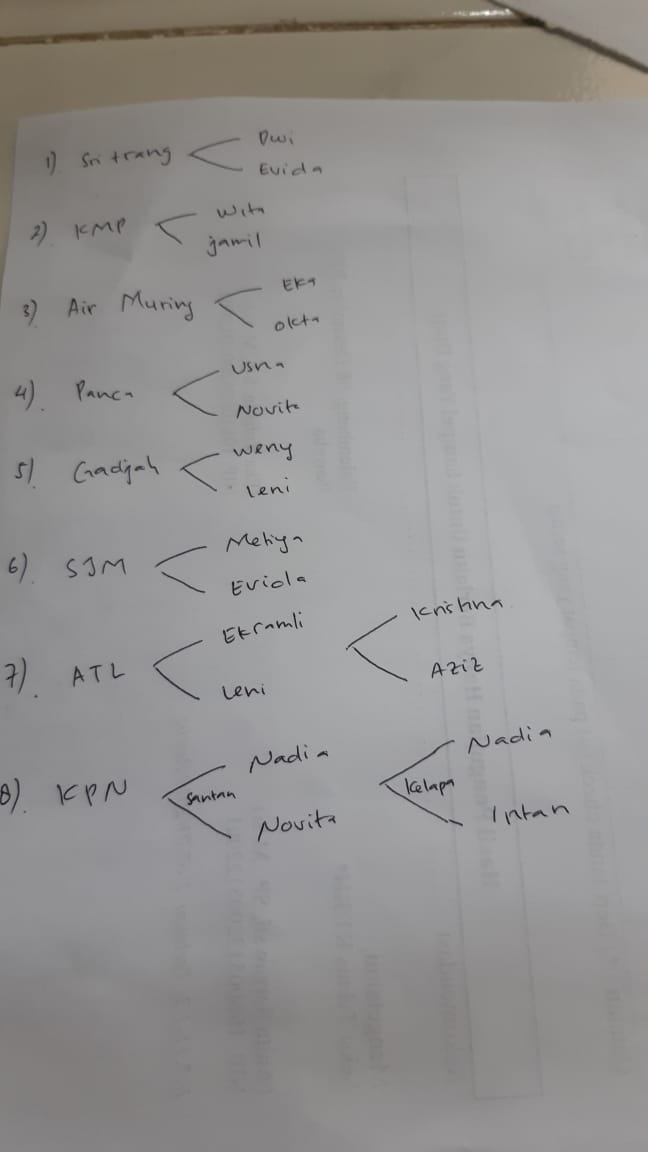 1) Sri trang
Dwi
Evida
2) KMP
Wita
jamil
3) Air Muring
Eka
Okta
4) Panca
Usna
Novita
5) Gadjah
weny
Leni
6) SJM
Metiya
Evida
7) ATL
Ekramli
Leni
Krishna
Aziz
8) KPN
santan
Nadia
Novita
Kelapa
Nadia
Intan